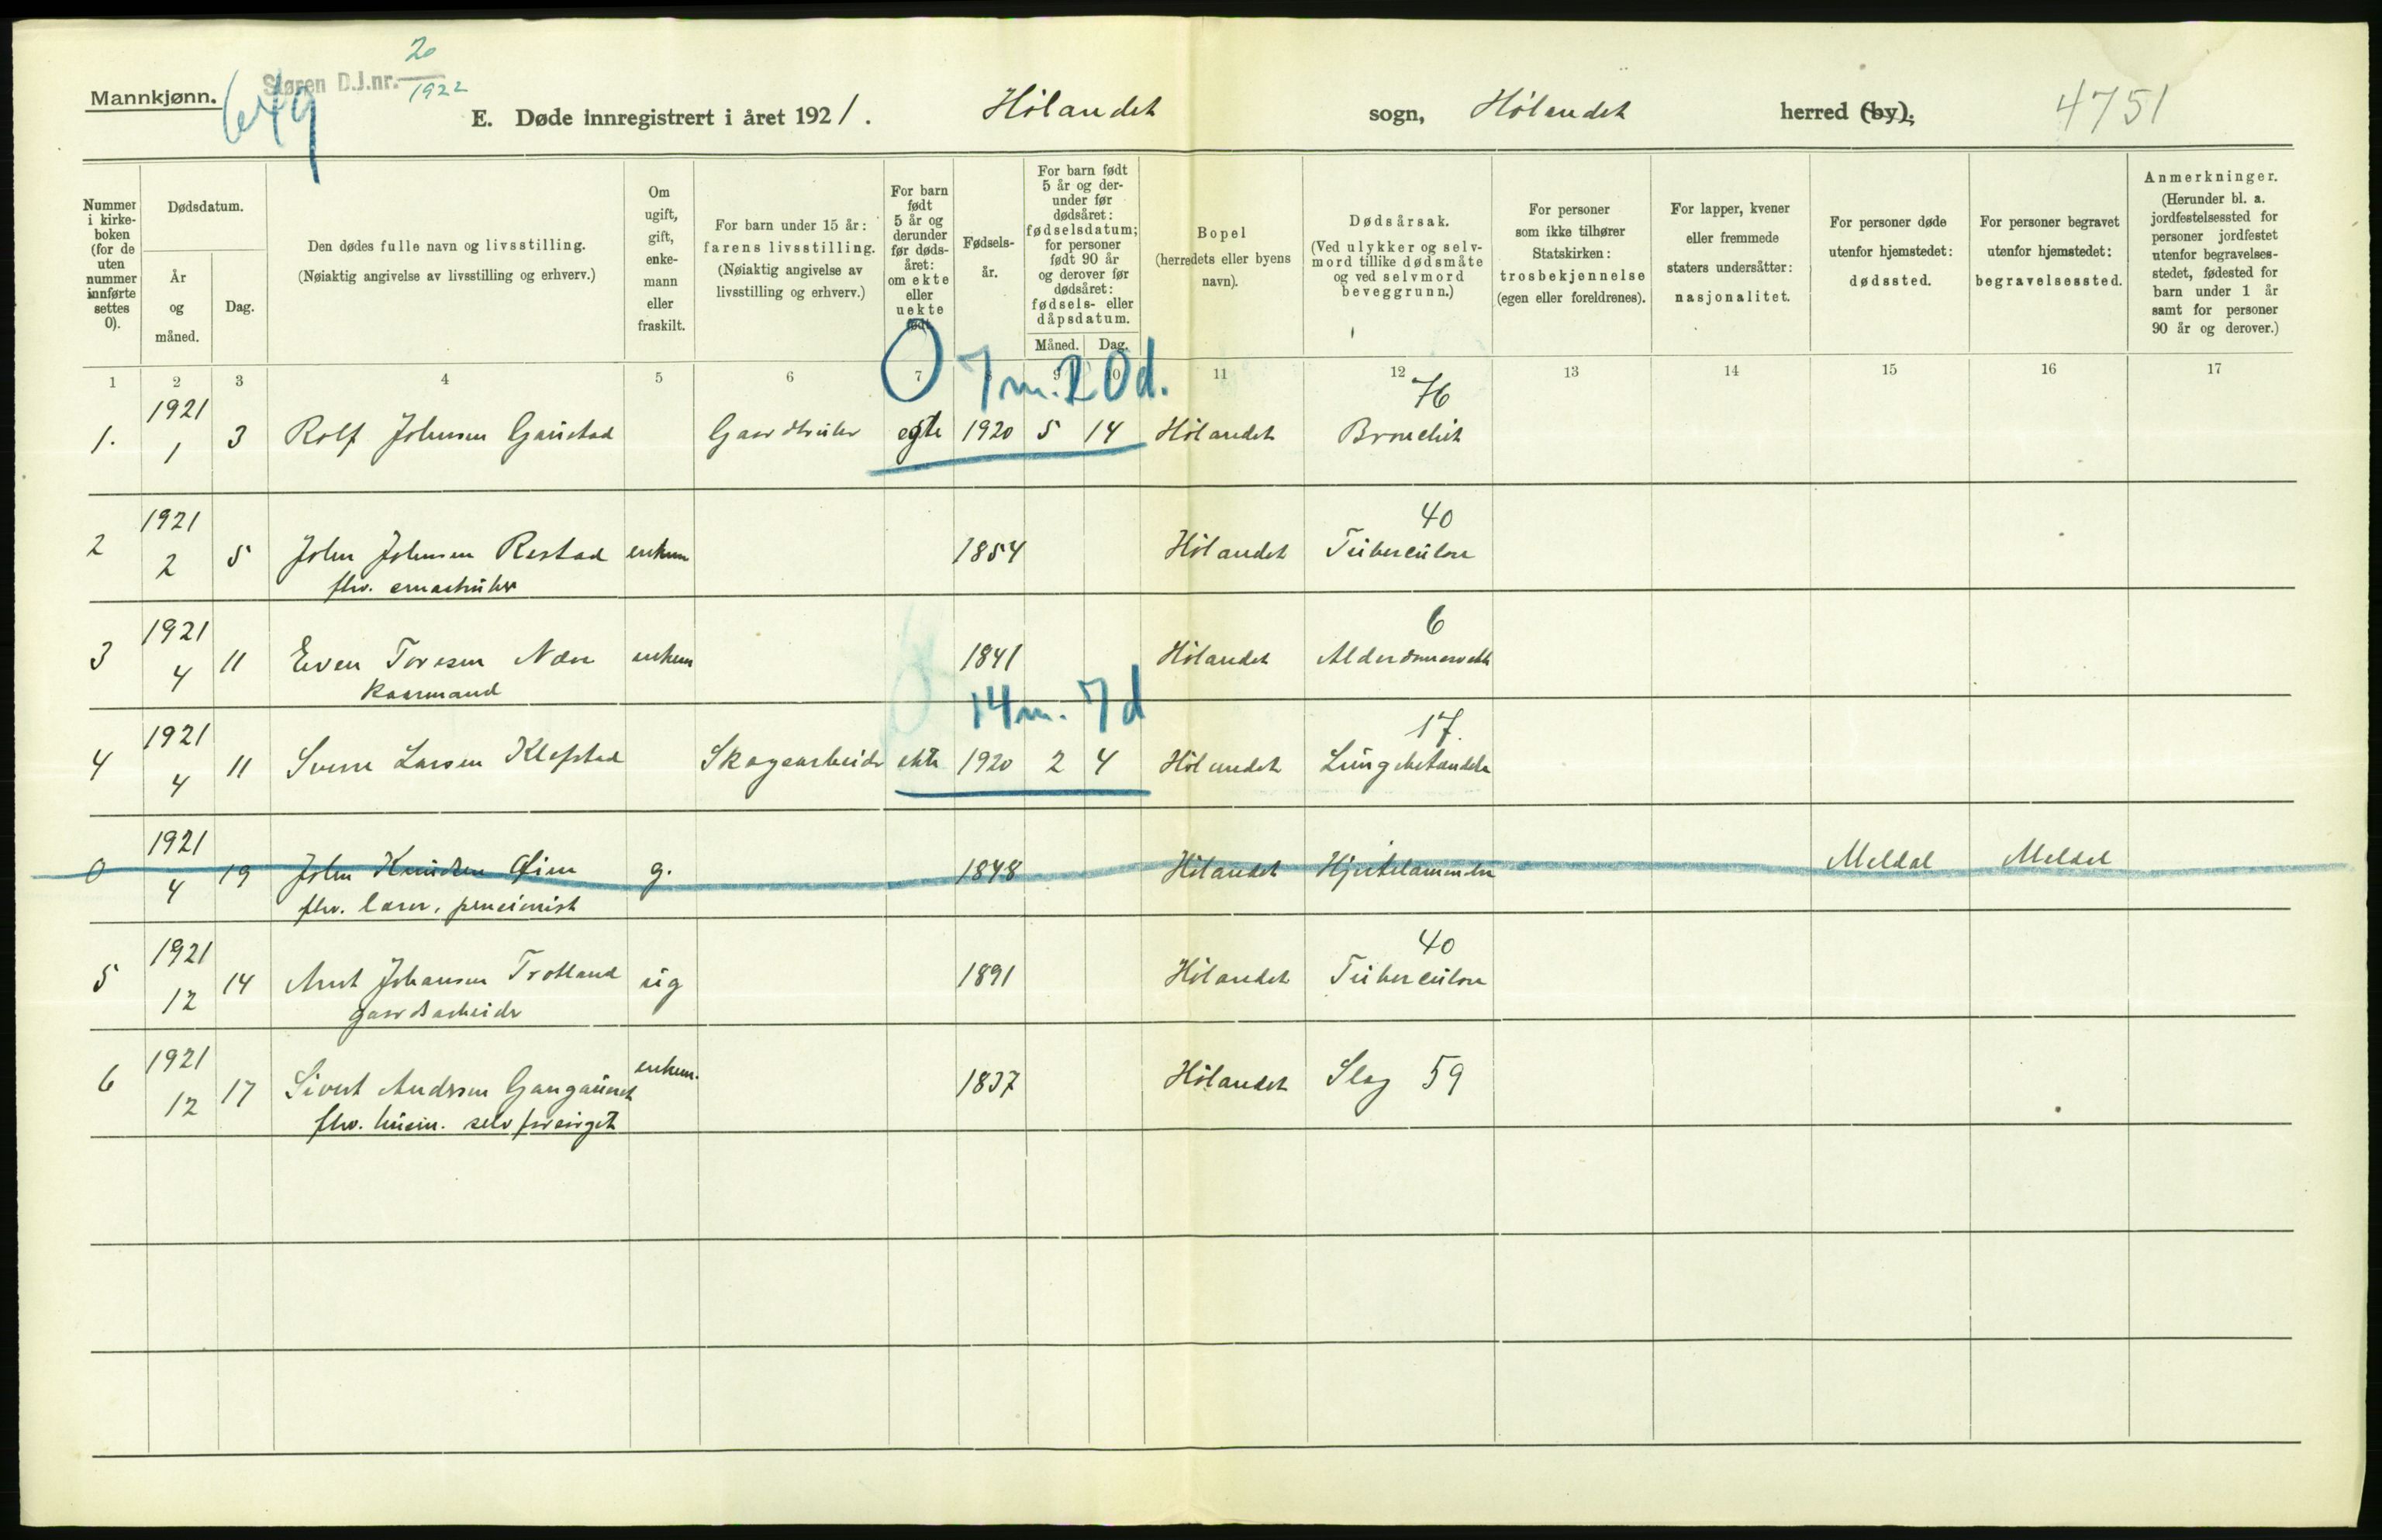 Mannkjønn.
649
Støren D.J.nr. 20/1922
E. Døde innregistrert i året 1921. Hølandet sogn, Hølandet herred (by).
4751
Nummer i kirkeboken (for de uten nummer innførte settes 0).
Dødsdatum.
År og måned.
Dag.
Den dødes fulle navn og livsstilling.
(Nøiaktig angivelse av livsstilling og erhverv.)
Om ugift, gift, enkemann eller fraskilt.
For barn under 15 år: farens livsstilling.
(Nøiaktig angivelse av livsstilling og erhverv.)
For barn født 5 år og derunder før dødsåret: om ekte eller uekte født.
Fødselsår.
For barn født 5 år og derunder før dødsåret: fødselsdatum; for personer født 90 år og derover før dødsåret: fødsels- eller dåpsdatum.
Måned. Dag.
Bopel
(herredets eller byens navn).
Dødsårsak.
(Ved ulykker og selvmord tillike dødsmåte og ved selvmord beveggrunn.)
For personer som ikke tilhører Statskirken: trosbekjennelse (egen eller foreldrenes).
For lapper, kvener eller fremmede staters undersåtter: nasjonalitet.
For personer døde utenfor hjemstedet: dødssted.
For personer begravet utenfor hjemstedet: begravelsessted.
Anmerkninger.
(Herunder bl. a. jordfestelsessted for personer jordfestet utenfor begravelsesstedet, fødested for barn under 1 år samt for personer 90 år og derover.)
1 2 3 4 5 6 7 8 9 10 11 12 13 14 15 16 17
0 7 m. 20 d.
76
1. 1921 1 3 Rolf Johnsen Gaustad Gaardbruker egte 1920 5 14 Hølandet Bronchit
40
2 1921 2 5 John Johnsen Restad enkem 1854 Hølandet Tuberculose
fhv. smaabruker
6
3 1921 4 11 Even Toresen Næve enkem 1841 Hølandet Alderdomssvakh
Kaarmand
14 m. 7 d
17.
4 1921 4 11 Sverre Larsen Klefstad Skogsarbeider ekte 1920 2 4 Hølandet Lungebetændelse
0 1921 4 19 John Knudsen g. 1848 Hølandet Hjertelammelse Meldal Meldal
fhv. lærer, pensionist
40
5 1921 12 14 Arnt Johansen Trotland ug 1891 Hølandet Tuberculose
gaardsarbeider
6 1921 12 17 Sivert Anderssen Gangaunet enkem. 1837 Hølandet Slag 59
fhv. husm. selvforsørget